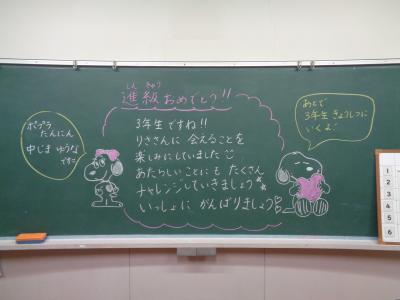 しん きゅう
進級おめでとう!!
3年生ですね!!
りささんに 会えることを
楽しみにしていました
あたらしいことにも たくさん
チャレンジしていきましょう
いっしょに がんばりましょう
ポプラ
たんにん
中じま ゆうな
です
あとで
3年生 きょうしつに
いくよ
1
2
3
4
5
6